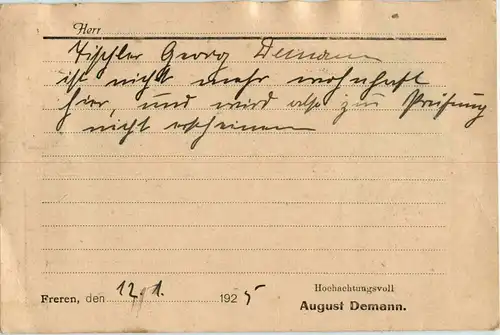 Herr
Tischler Georg Demann
ist nicht mehr wohnhaft
hier, und wird also zur Prüfung
nicht erscheinen
Freren, den 12./1. 1925
Hochachtungsvoll
August Demann.